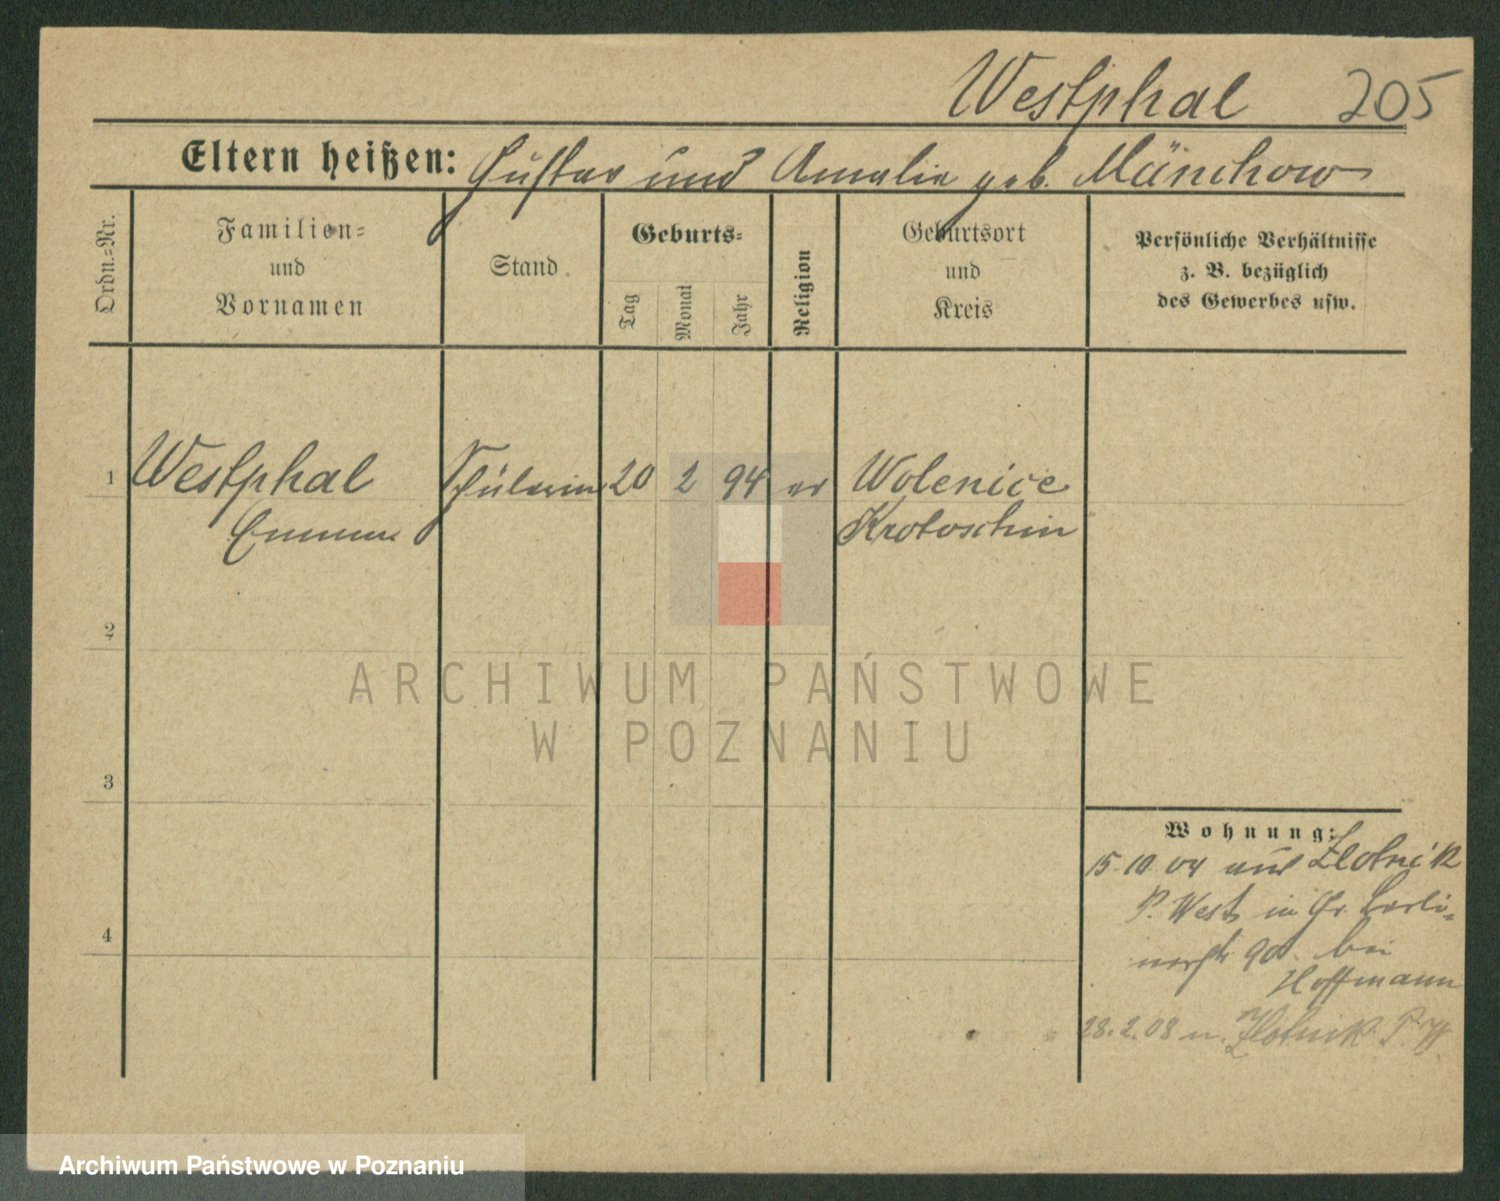 Westphal 205
Eltern heißen: Gustav und Amalie geb. Münchow
Ordn.-Nr.
Familien-
und
Vornamen
Stand
Geburts-
Tag
Monat
Jahr
Religion
Geburtsort
und
Kreis
Persönliche Verhältnisse
z. B. bezüglich
des Gewerbes usw.
1 Westphal Schülerin 20 2 94 ev Wolenice
Emma Krotoschin
2
3
4
Wohnung:
15.10.04 aus Zlotnik
P. West in Gr. Berli-
nerstr 90 bei
Hoffmann
28.2.08 n. Zlotnik P. W
ARCHIWUM PAŃSTWOWE
W POZNANIU
Archiwum Państwowe w Poznaniu